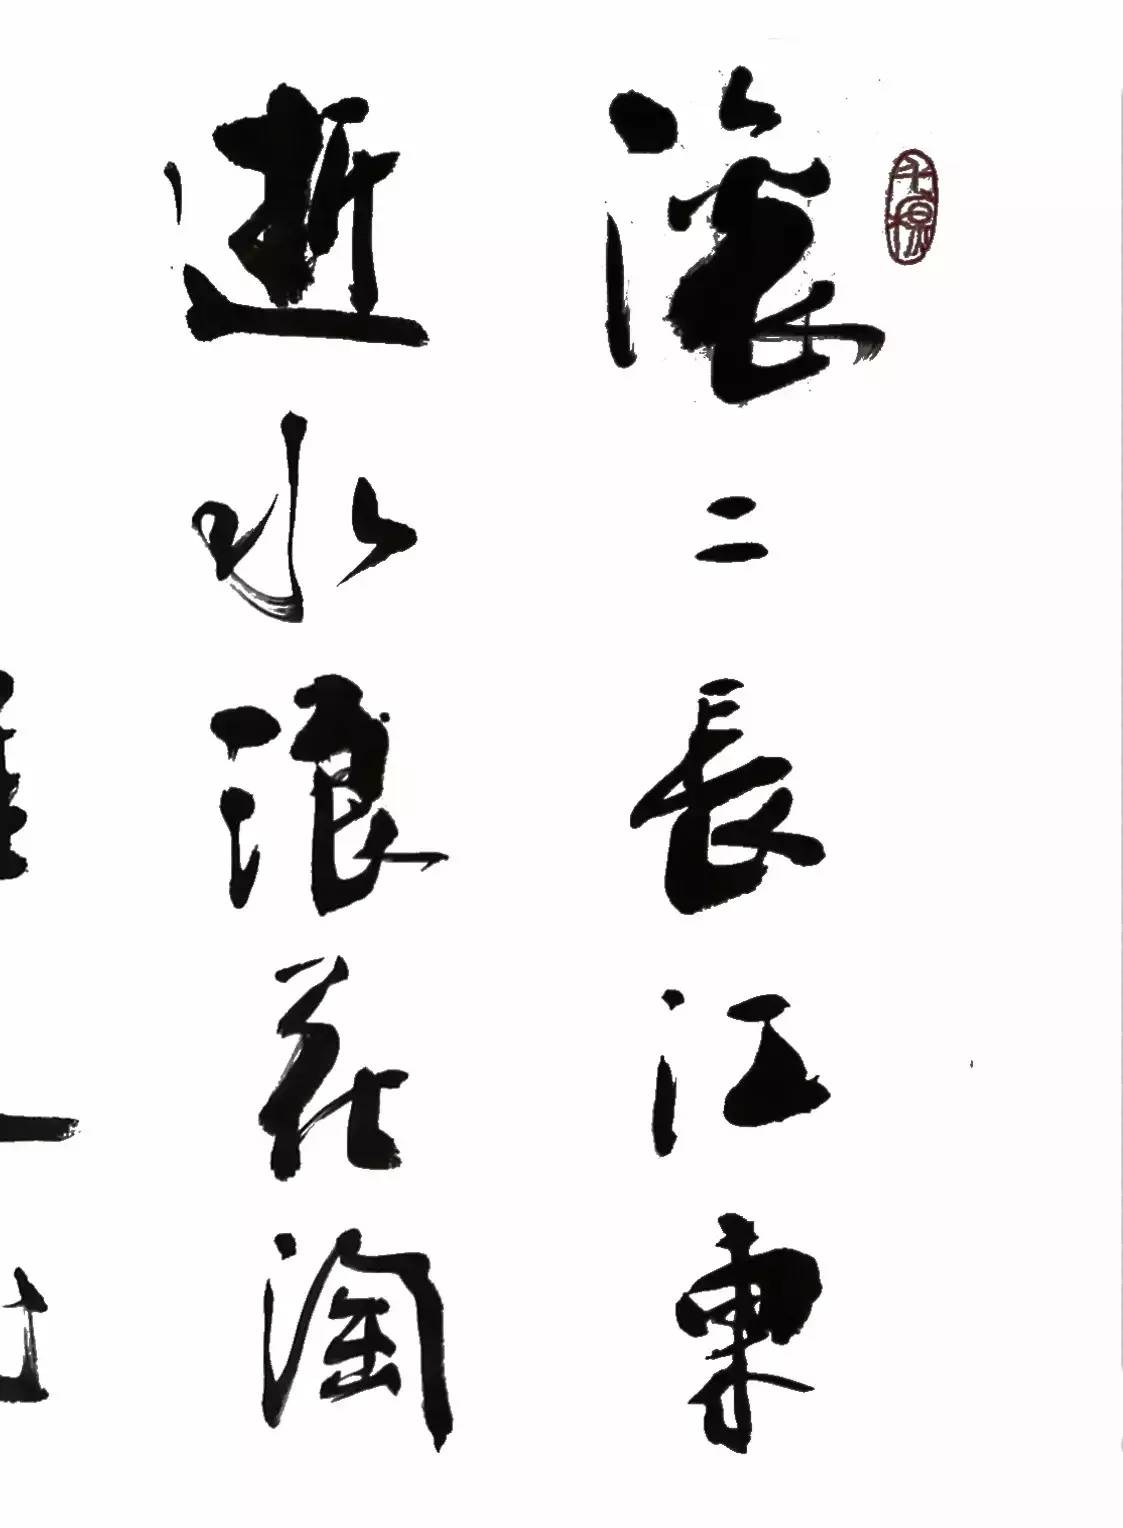 滾二長江東
逝水浪花淘